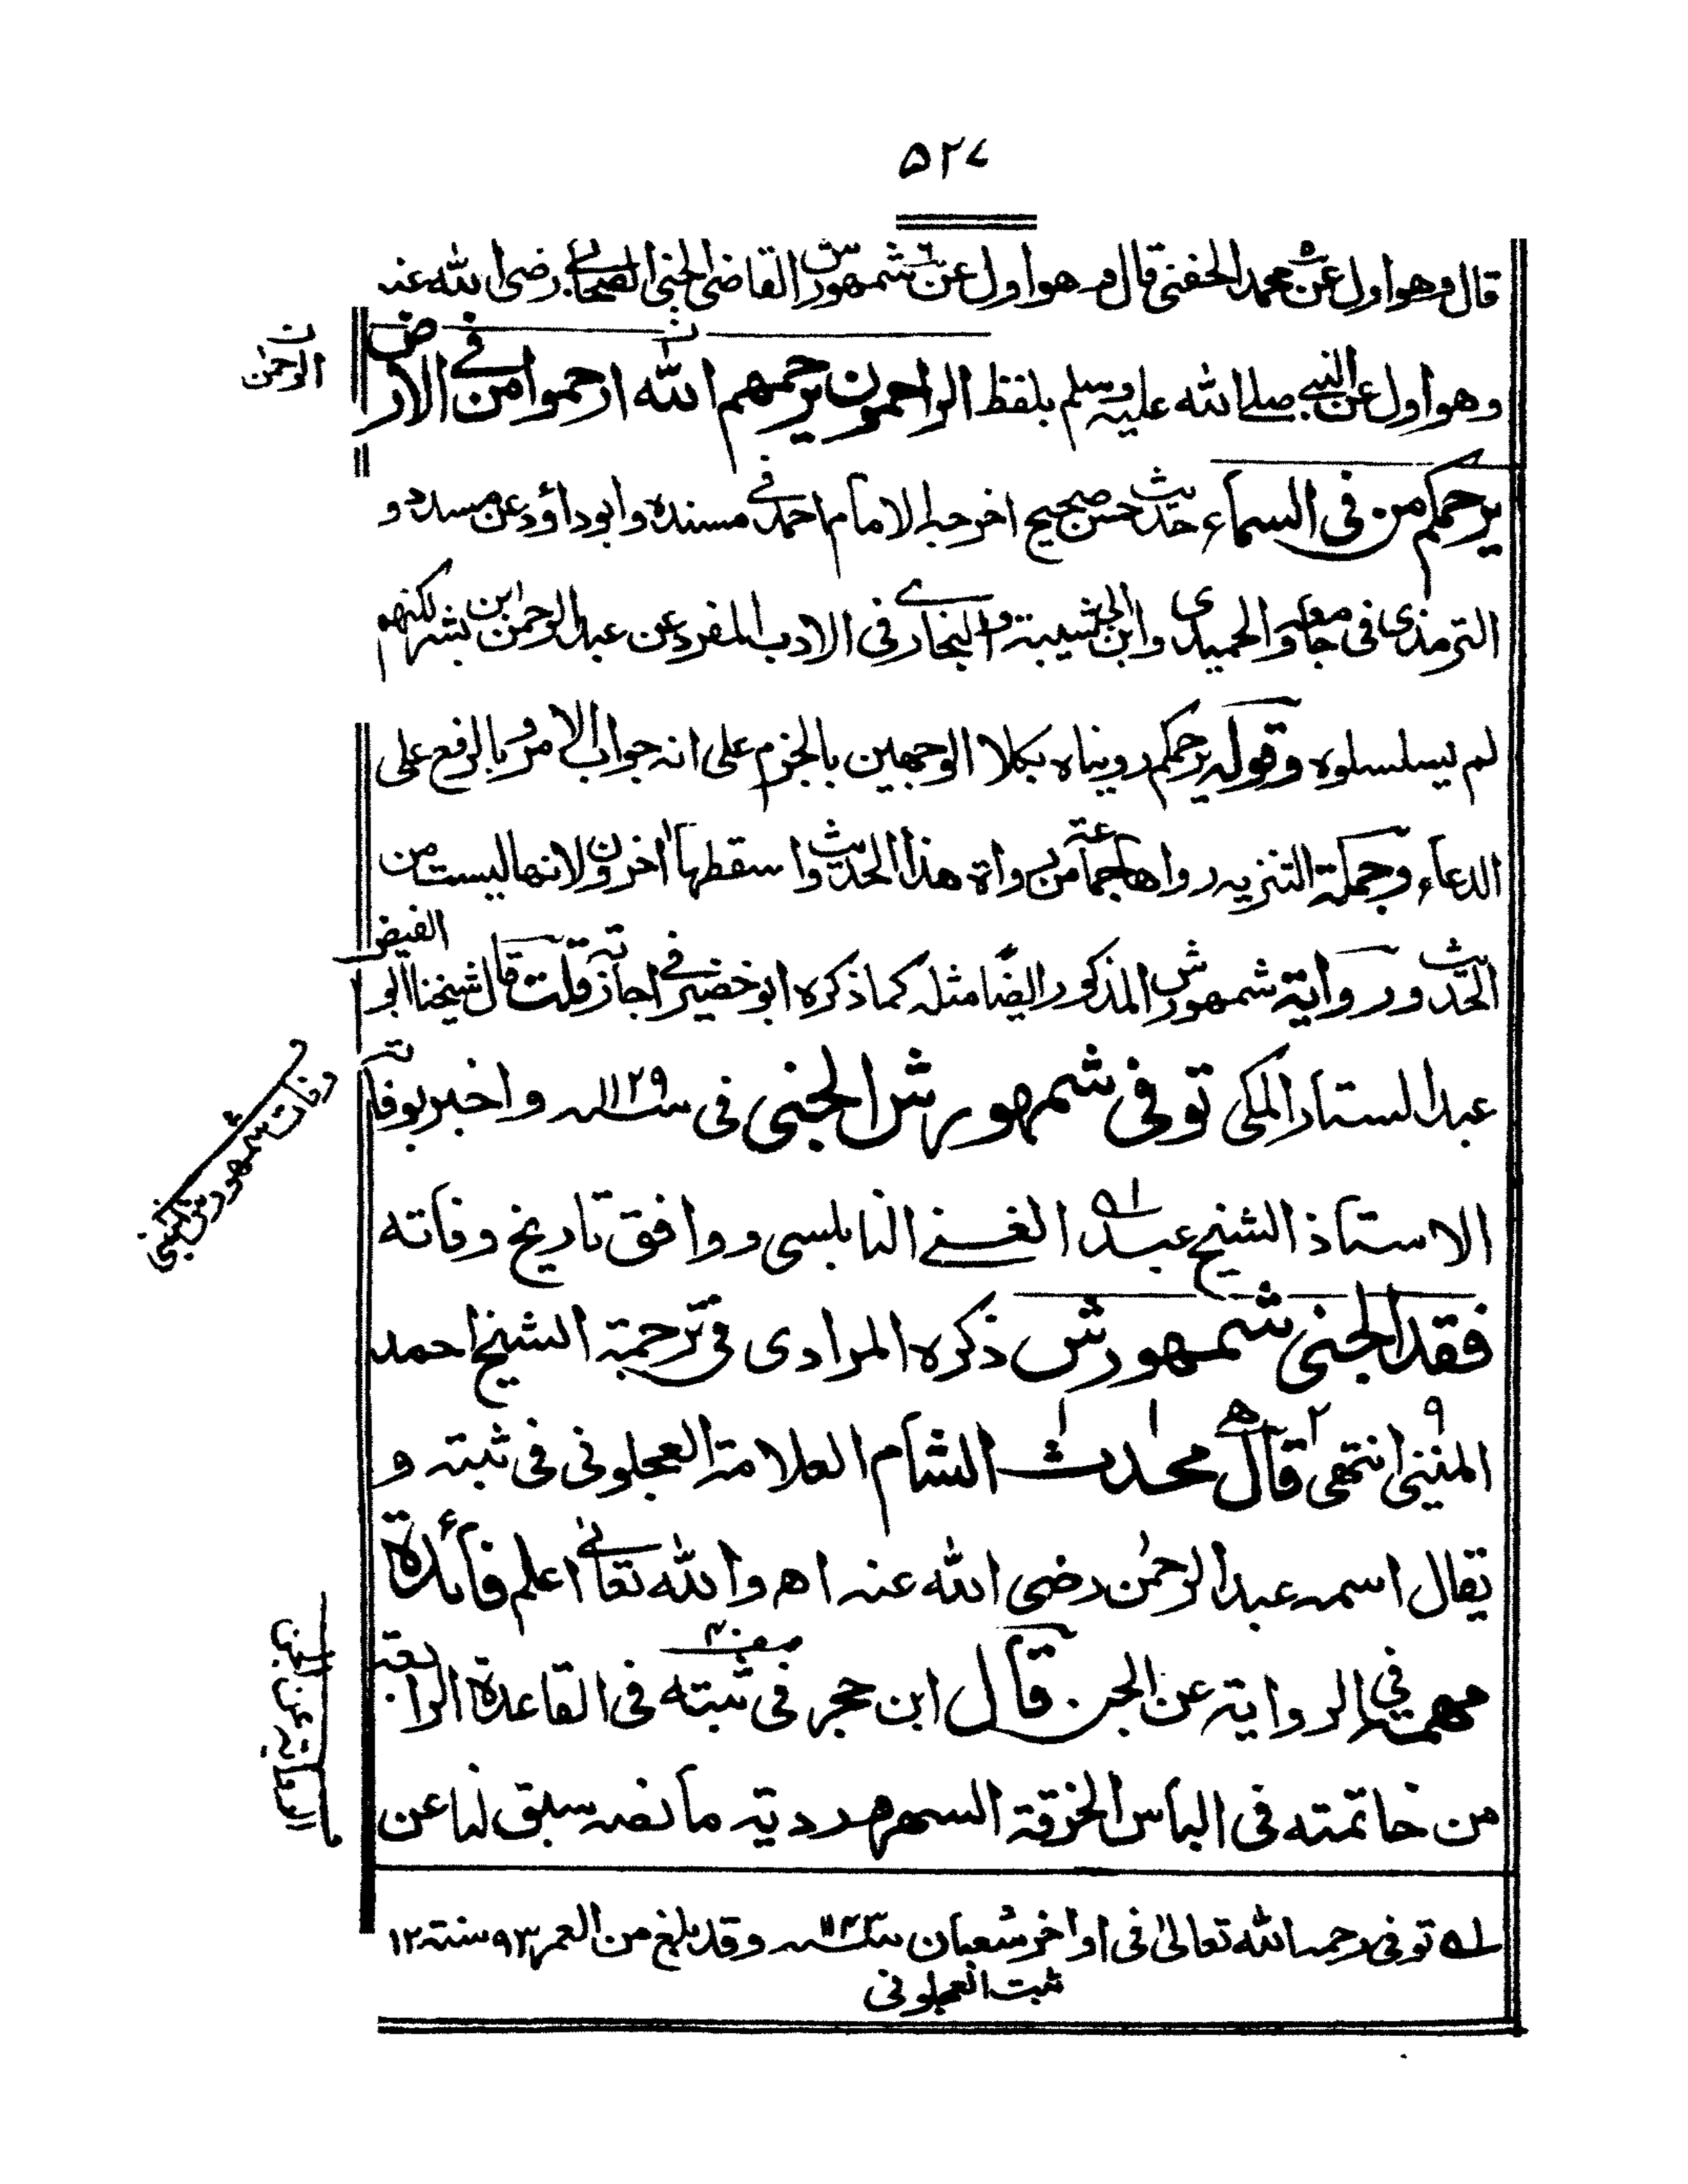 ٥٢٧
قال وهو اول عن محمد الحفنی قال وهو اول عن شمهورش القاضی الجنی الصحابی رضی الله عنه
وهو اول عن النبی صلی الله علیه وسلم بلفظ الراحمون یرحمهم الله ارحموا من فی الارض
الرحمٰن
یرحمکم من فی السمآء حدیث حسن صحیح اخرجه الامام احمد فی مسنده وابوداؤد عن مسدد و
الترمذی فی جامعه والحمیدی وابن ابی شیبة والبخاری فی الادب المفرد عن عبدالرحمن ابن بشر لکنهم
لم یسلسلوه وقوله یرحمکم رویناه بکلا الوجهین بالجزم علی انه جواب الامر وبالرفع علی
الدعآء وجملة التنزیه رواها جماعة من رواة هذا الحدیث واسقطها اٰخرون ولانها لیست من
الحدیث وروایة شمهورش المذکور ایضًا مثله کما ذکره ابو خضیر فی اجازته قلت قال شیخنا ابو الفیض
عبدالستار المکی توفی شمهورش الجنی فی سنة ١١٢٩ واخبر بوفاته
وفات شمهورش الجنی
الاستاذ الشیخ عبد الغنی النابلسی ووافق تاریخ وفاته
فقد الجنی شمهورش ذکره المرادی فی ترجمة الشیخ احمد
٩ ٢ ١ ١
المنینی انتهی قال محدث الشام العلامة العجلونی فی ثبته و
یقال اسمه عبدالرحمٰن رضی الله عنه اھ والله تعالٰی اعلم فائدة
مهمة فی الروایة عن الجن. قال ابن حجر فی ثبته فی القاعدة الرابعة
الروایة عن الجن
من خاتمته فی الباس الخرقة السهروردیة ما نصه سبق لنا عن
له توفی رحمه الله تعالٰی فی اواخر شعبان سنة ١١٤٣ وقد بلغ من العمر ٩٣ سنة ١٢
ثبت العجلونی